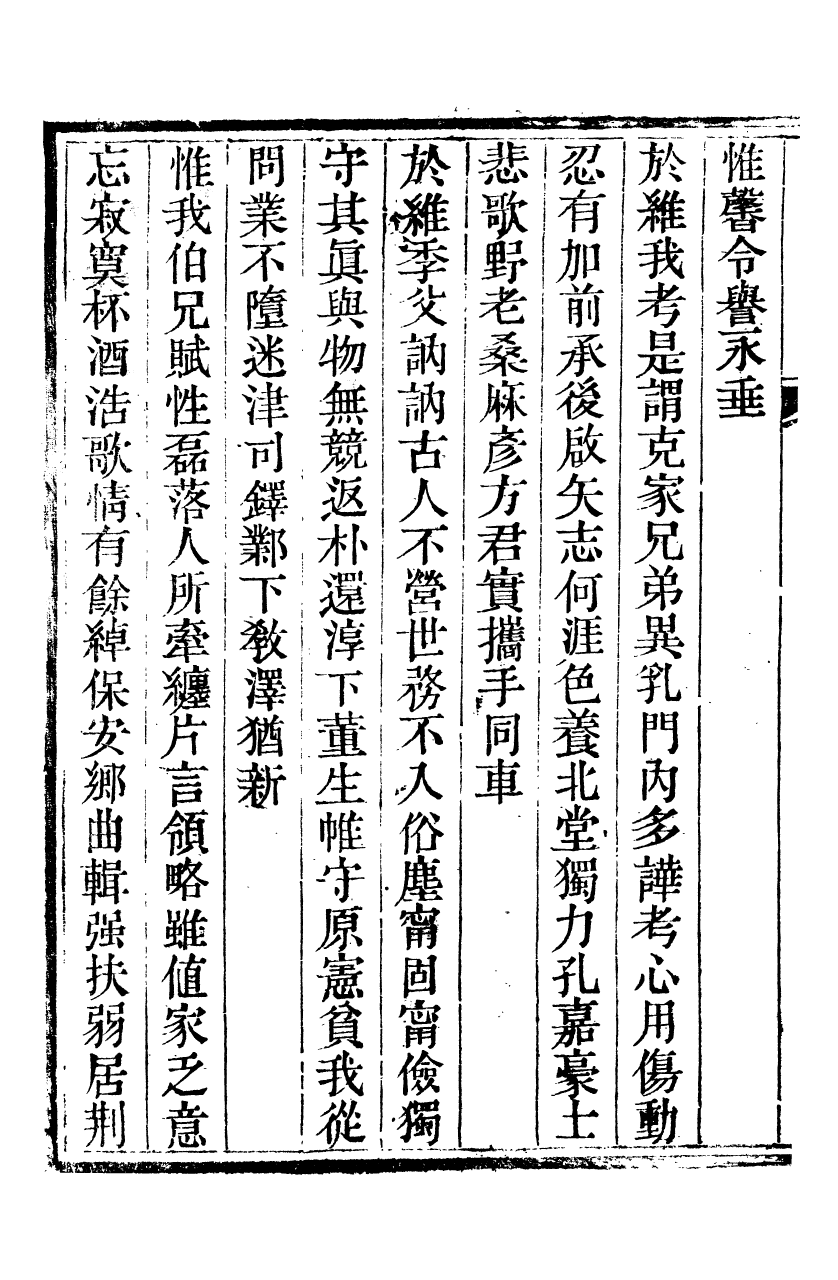 惟馨令譽永垂
於維我考是謂克家兄弟異乳門內多譁考心用傷動
忍有加前承後啟矢志何涯色養北堂獨力孔嘉豪士
悲歌野老桑麻彥方君實攜手同車
於維季父訥訥古人不營世務不入俗塵甯固甯儉獨
守其眞與物無競返朴還淳下董生帷守原憲貧我從
問業不墮迷津司鐸鄴下敎澤猶新
惟我伯兄賦性磊落人所牽纏片言領略雖値家乏意
忘寂寞杯酒浩歌情有餘綽保安鄉曲輯强扶弱居荆